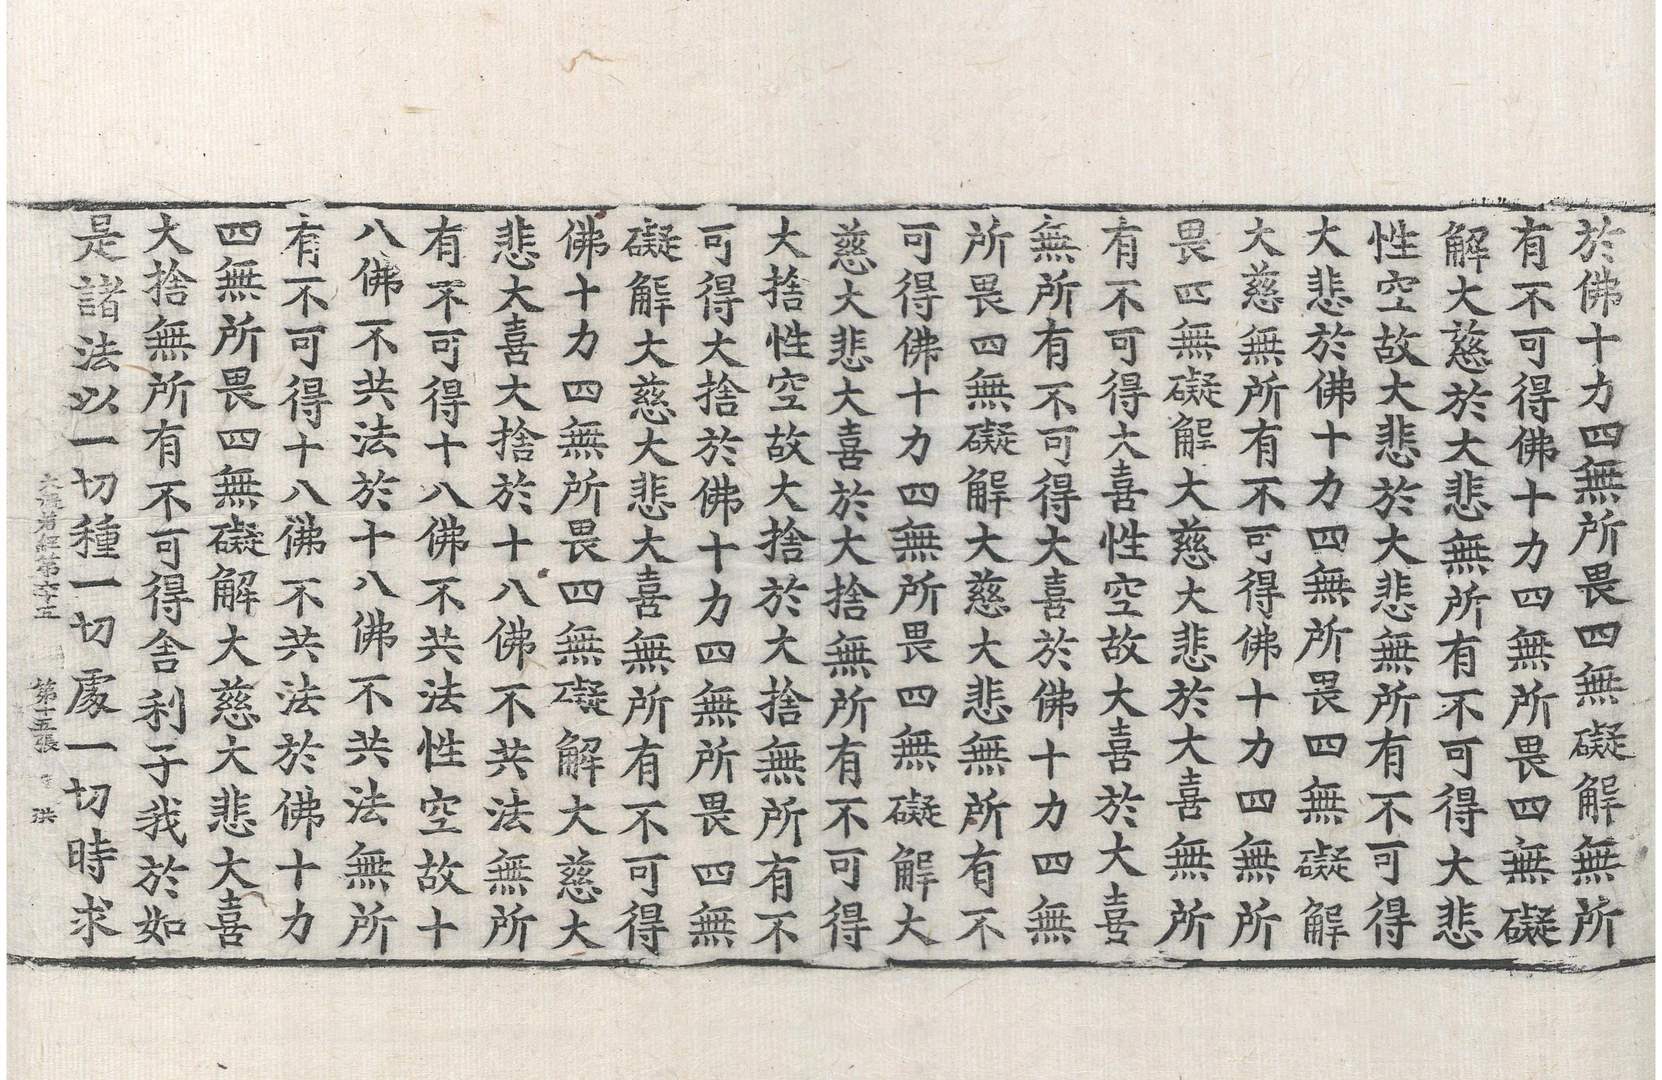 於佛十力四無所畏四無礙解無所
有不可得佛十力四無所畏四無礙
解大慈於大悲無所有不可得大悲
性空故大悲於大悲無所有不可得
大悲於佛十力四無所畏四無礙解
大慈無所有不可得佛十力四無所
畏四無礙解大慈大悲於大喜無所
有不可得大喜性空故大喜於大喜
無所有不可得大喜於佛十力四無
所畏四無礙解大慈大悲無所有不
可得佛十力四無所畏四無礙解大
慈大悲大喜於大捨無所有不可得
大捨性空故大捨於大捨無所有不
可得大捨於佛十力四無所畏四無
礙解大慈大悲大喜無所有不可得
佛十力四無所畏四無礙解大慈大
悲大喜大捨於十八佛不共法無所
有不可得十八佛不共法性空故十
八佛不共法於十八佛不共法無所
有不可得十八佛不共法於佛十力
四無所畏四無礙解大慈大悲大喜
大捨無所有不可得舍利子我於如
是諸法以一切種一切處一切時求
大般若經第六十五 第十五張 洪